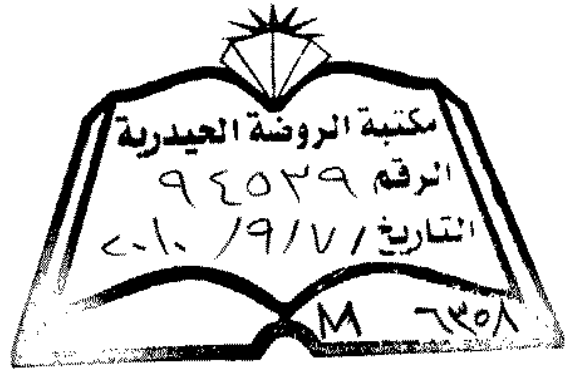 مكتبة الروضة الحيدرية
الرقم ٩٤٥٣٩
التاريخ ٧/٩/٢٠١٠
M ٦٣٥٨